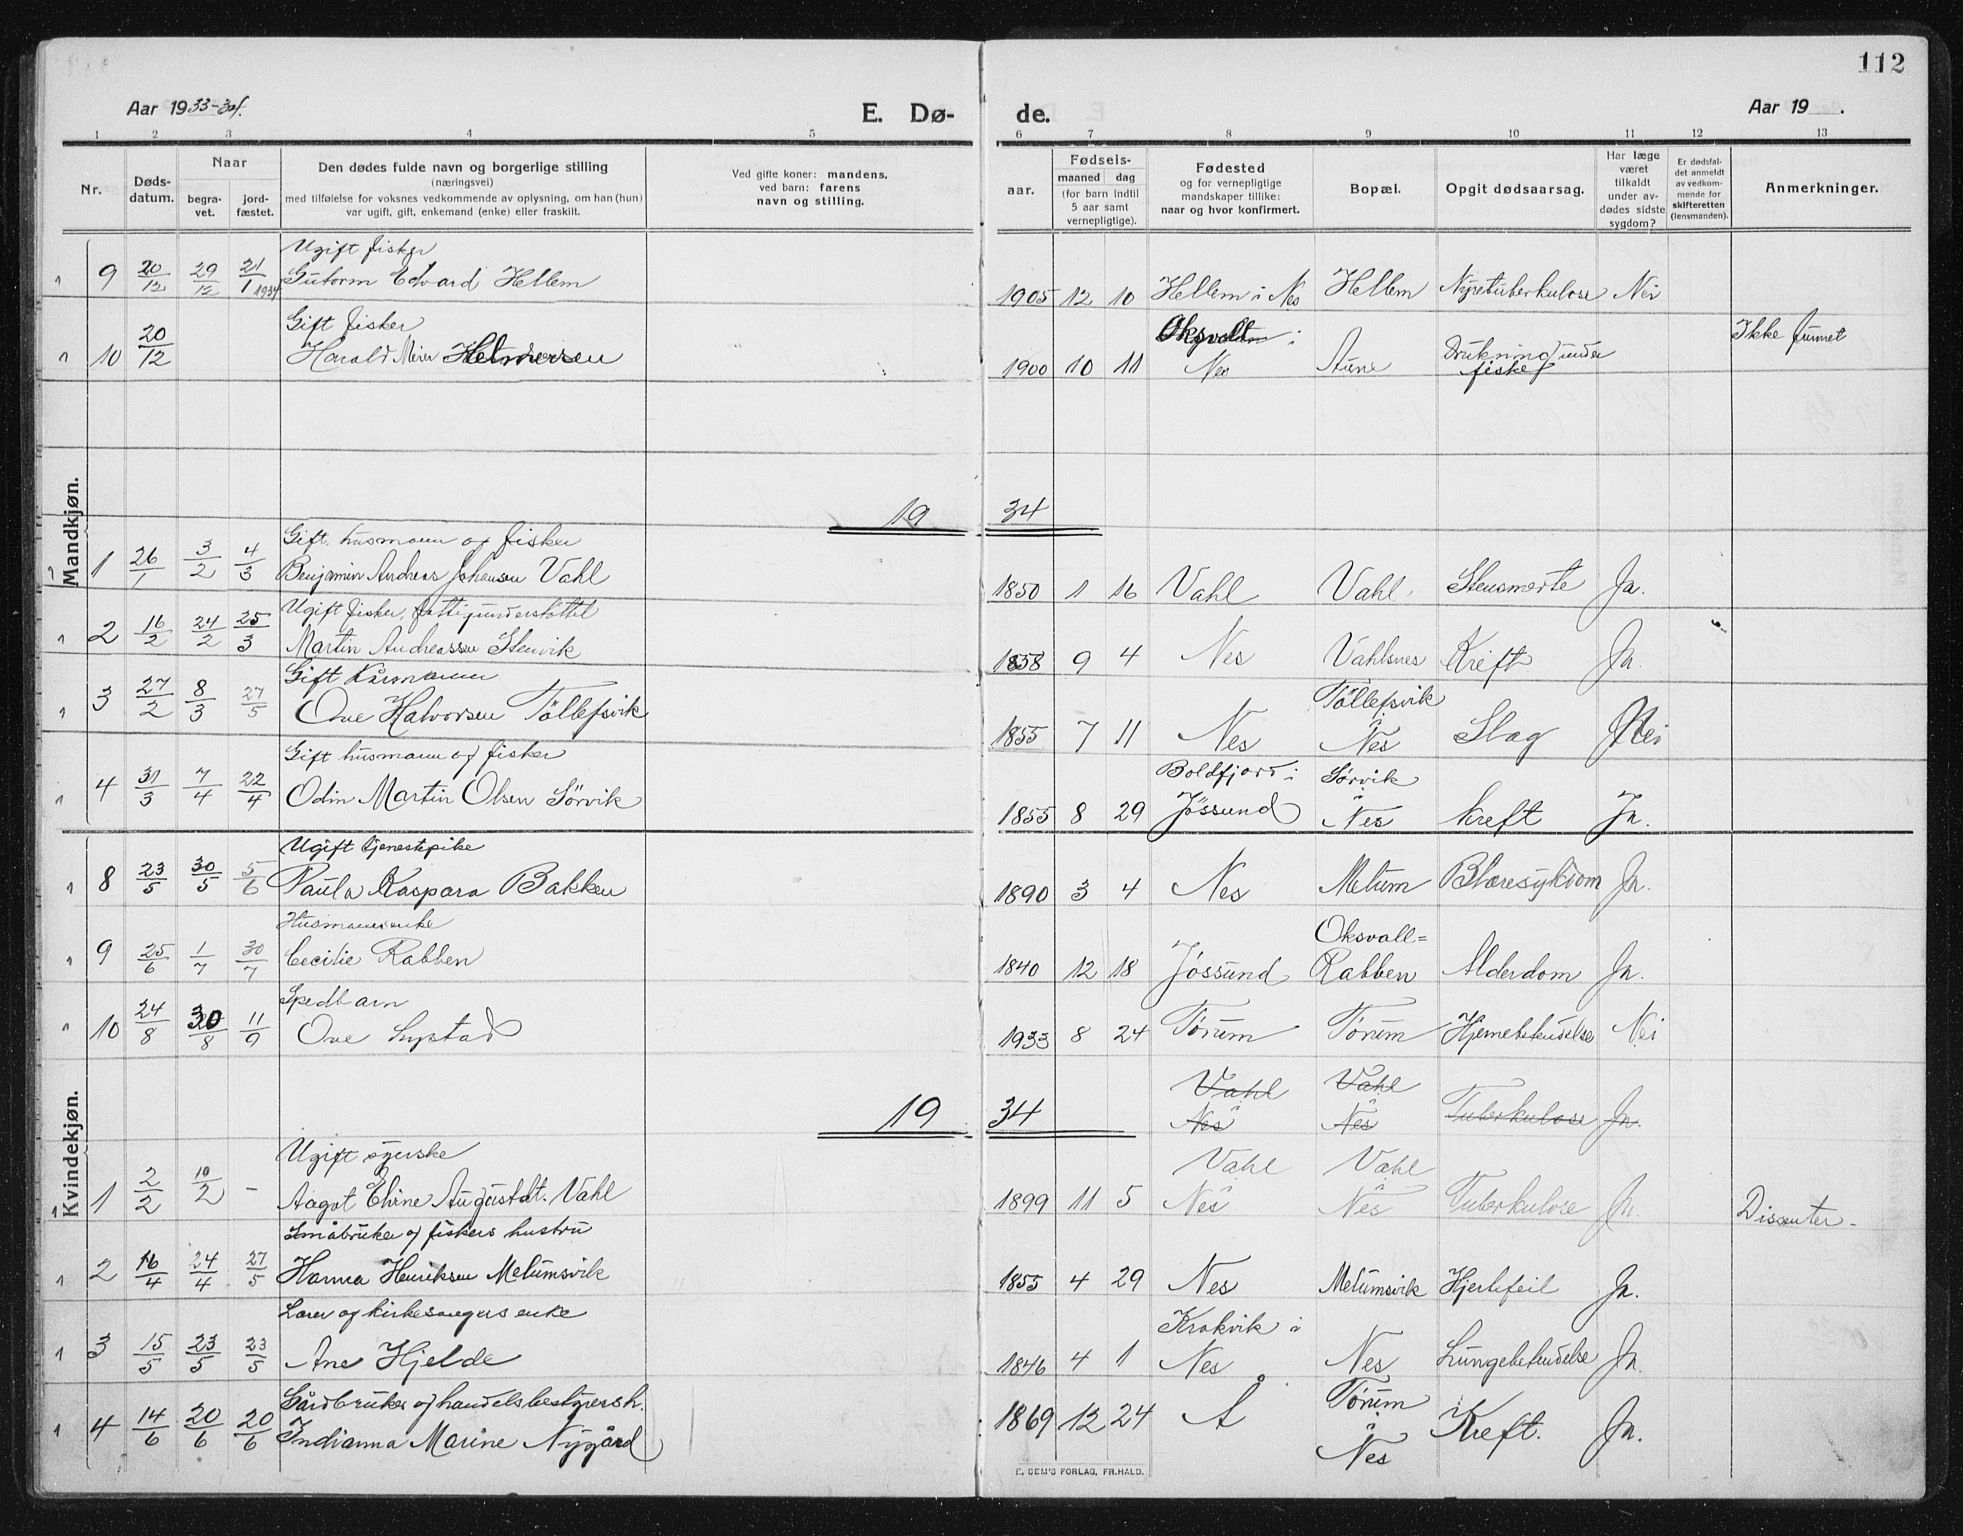 112
Aar 1933-34.
E. Dø-
de.
Aar 19 .
1 2 3 4 5 6 7 8 9 10 11 12 13
Nr.
Døds-
datum.
Naar
begra-
vet.
jord-
fæstet.
Den dødes fulde navn og borgerlige stilling
(næringsvei)
med tilføielse for voksnes vedkommende av oplysning, om han (hun)
var ugift, gift, enkemand (enke) eller fraskilt.
Ved gifte koner: mandens,
ved barn: farens
navn og stilling.
Fødsels-
aar.
maaned dag
(for barn indtil
5 aar samt
vernepligtige).
Fødested
og for vernepligtige
mandskaper tillike:
naar og hvor konfirmert.
Bopæl.
Opgit dødsaarsag.
Har læge
været
tilkaldt
under av-
dødes sidste
sygdom?
Er dødsfal-
det anmeldt
av vedkom-
mende for
skifteretten
(lensmanden).
Anmerkninger.
Mandkjøn.
Ugift fisker
9 20/12 29/12 21/1 1934 Gutorm Edvard Hellem 1905 12 10 Hellem i Nes Hellem Nyretuberkulose Nei
Gift fisker Oksvoll i Ikke funnet
10 20/12 Harald Meier Helmersen 1900 10 11 Nes Aune Drukning under
fiske
19 34
Gift. husmann og fisker
1 26/1 3/2 4/3 Benjamin Andreas Johansen Vahl 1850 1 16 Vahl Vahl Stensmerte Ja.
Ugift fisker, fattigunderstöttet
2 16/2 24/2 25/3 Martin Andreassen Stenvik 1858 9 4 Nes Vahlsnes Kreft Ja.
Gift Kårmann Töllefsvik
3 27/2 8/3 27/5 Ove Halvorsen Töllefsvik 1855 7 11 Nes i Nes Slag Nei
Gift husmann og fisker Boldfjord i Sörvik
4 31/3 7/4 22/4 Odin Martin Olsen Sörvik 1855 8 29 Jössund i Nes Kreft Ja.
Kvindekjøn.
Ugift tjenestepike
8 23/5 30/5 5/6 Paula Kaspara Bakken 1890 3 4 Nes Melum Blæresykdom Ja.
Husmannsenke Oksvoll=
9 25/6 1/7 30/7 Cecilie Rabben 1840 12 18 Jössund Rabben Alderdom Ja.
Spedbarn
10 24/8 30/8 11/9 Ove Lystad 1933 8 24 Törum Törum Hjernebetendelse Nei
Vahl Vahl
19 34 i Nes i Nes Tuberkulose Ja.
Ugift syerske Vahl Vahl
1 2/2 10/2 - Aagot Elvine Augusta t. Vahl 1899 11 5 i Nes i Nes Tuberkulose Ja. Dissenter -
Småbruker og fiskers hustru
2 16/4 24/4 27/5 Hanna Henriksen Melumsvik 1855 4 29 Nes Melumsvik Hjertefeil Ja.
Lærer og kirkesangers enke Krokvik i
3 15/5 23/5 23/5 Ane Hjelde 1846 4 1 Nes Nes Lungebetendelse Ja.
Gårdbruker og handelsbestyrers h. Törum
4 14/6 20/6 20/6 Indianna Marine Nygård 1869 12 24 Å i Nes Kreft. Ja.
E. SEM'S FORLAG, FR.HALD.